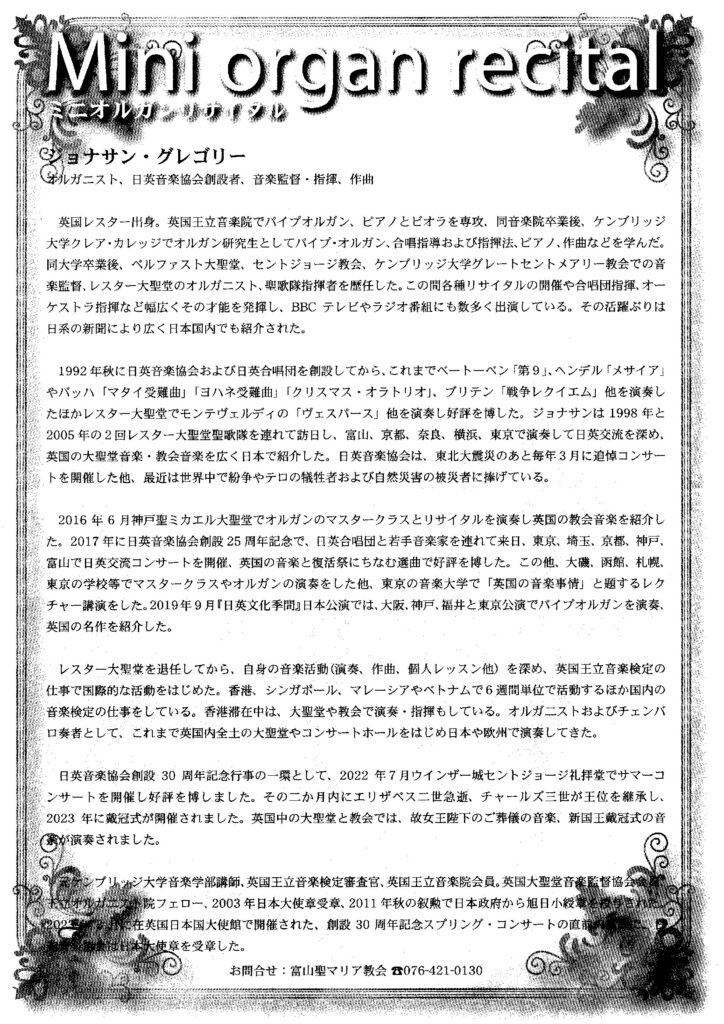 Mini organ recital
ミニオルガンリサイタル
ジョナサン・グレゴリー
オルガニスト、日英音楽協会創設者、音楽監督・指揮、作曲
英国レスター出身。英国王立音楽院でパイプオルガン、ピアノとビオラを専攻、同音楽院卒業後、ケンブリッジ
大学クレア・カレッジでオルガン研究生としてパイプ・オルガン、合唱指導および指揮法、ピアノ、作曲などを学んだ。
同大学卒業後、ベルファスト大聖堂、セントジョージ教会、ケンブリッジ大学グレートセントメアリー教会での音
楽監督、レスター大聖堂のオルガニスト、聖歌隊指揮者を歴任した。この間各種リサイタルの開催や合唱団指揮、オー
ケストラ指揮など幅広くその才能を発揮し、BBC テレビやラジオ番組にも数多く出演している。その活躍ぶりは
日系の新聞により広く日本国内でも紹介された。
1992年秋に日英音楽協会および日英合唱団を創設してから、これまでベートーベン「第9」、ヘンデル「メサイア」
やバッハ「マタイ受難曲」「ヨハネ受難曲」「クリスマス・オラトリオ」、ブリテン「戦争レクイエム」他を演奏し
たほかレスター大聖堂でモンテヴェルディの「ヴェスパース」他を演奏し好評を博した。ジョナサンは 1998 年と
2005 年の2回レスター大聖堂聖歌隊を連れて訪日し、富山、京都、奈良、横浜、東京で演奏して日英交流を深め、
英国の大聖堂音楽・教会音楽を広く日本で紹介した。日英音楽協会は、東北大震災のあと毎年3月に追悼コンサー
トを開催した他、最近は世界中で紛争やテロの犠牲者および自然災害の被災者に捧げている。
2016 年 6 月神戸聖ミカエル大聖堂でオルガンのマスタークラスとリサイタルを演奏し英国の教会音楽を紹介し
た。2017 年に日英音楽協会創設 25 周年記念で、日英合唱団と若手音楽家を連れて来日、東京、埼玉、京都、神戸、
富山で日英交流コンサートを開催、英国の音楽と復活祭にちなむ選曲で好評を博した。この他、大磯、函館、札幌、
東京の学校等でマスタークラスやオルガンの演奏をした他、東京の音楽大学で「英国の音楽事情」と題するレク
チャー講演をした。2019年9月『日英文化季間』日本公演では、大阪、神戸、福井と東京公演でパイプオルガンを演奏、
英国の名作を紹介した。
レスター大聖堂を退任してから、自身の音楽活動(演奏、作曲、個人レッスン他) を深め、英国王立音楽検定の
仕事で国際的な活動をはじめた。香港、シンガポール、マレーシアやベトナムで6週間単位で活動するほか国内の
音楽検定の仕事をしている。香港滞在中は、大聖堂や教会で演奏・指揮もしている。オルガニストおよびチェンバ
ロ奏者として、これまで英国内全土の大聖堂やコンサートホールをはじめ日本や欧州で演奏してきた。
日英音楽協会創設 30 周年記念行事の一環として、2022 年7月ウインザー城セントジョージ礼拝堂でサマーコ
ンサートを開催し好評を博しました。その二か月内にエリザベス二世急逝、チャールズ三世が王位を継承し、
2023 年に戴冠式が開催されました。英国中の大聖堂と教会では、故女王陛下のご葬儀の音楽、新国王戴冠式の音
楽が演奏されました。
元ケンブリッジ大学音楽学部講師、英国王立音楽検定審査官、英国王立音楽院会員。英国大聖堂音楽監督協会会員
王立オルガニスト院フェロー、2003 年日本大使章受章、2011 年秋の叙勲で日本政府から旭日小綬章を授与された。
月に在英国日本国大使館で開催された、創設 30 周年記念スプリング・コンサートの直前
は日本大使章を受章した。
お問合せ：富山聖マリア教会 ☎076-421-0130